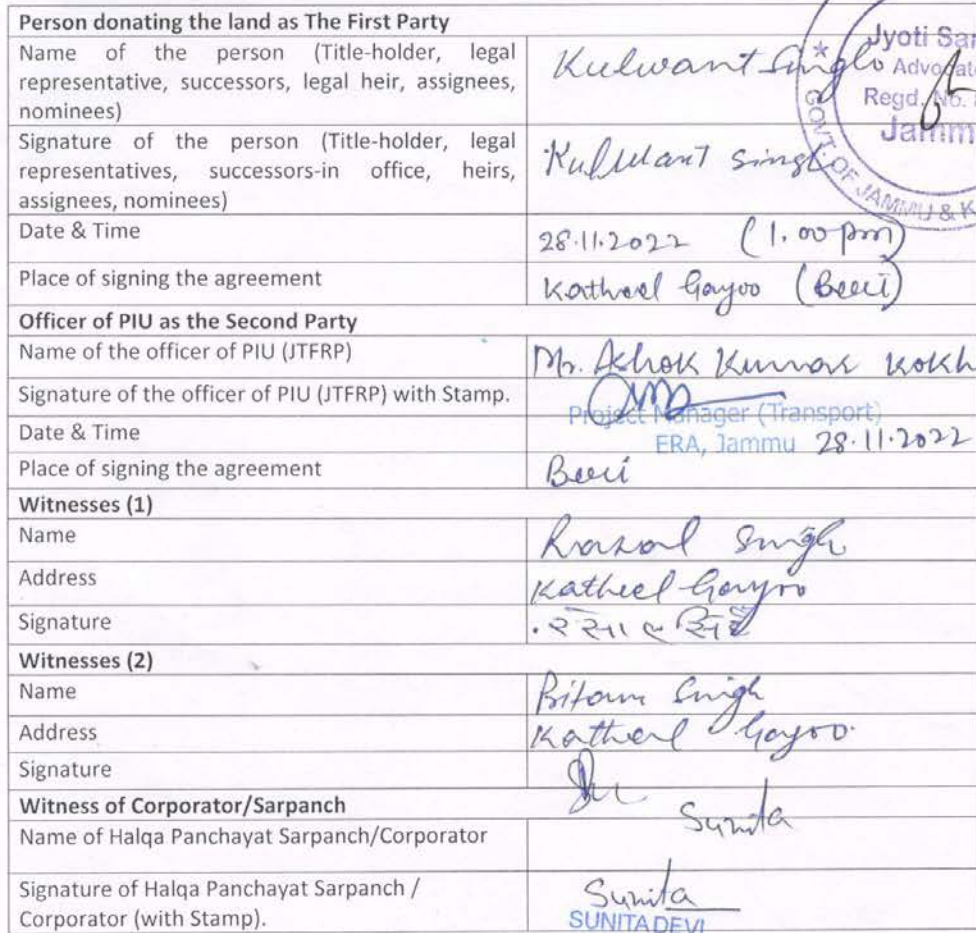 Person donating the land as The First Party
Name of the person (Title-holder, legal
representative, successors, legal heir, assignees,
nominees)
Kulwant Singh
Jyoti Sar
Advocate
Regd. No.
Jammu
GOVT. OF JAMMU & K
Signature of the person (Title-holder, legal
representatives, successors-in office, heirs,
assignees, nominees)
Kulwant singh
Date & Time
28.11.2022 (1.00 pm)
Place of signing the agreement
Gayoo
Officer of PIU as the Second Party
Name of the officer of PIU (JTFRP)
Mr. Ashok Kumar Kokh
Signature of the officer of PIU (JTFRP) with Stamp.
Project Manager (Transport)
ERA, Jammu
Date & Time
28.11.2022
Place of signing the agreement
Witnesses (1)
Name
Singh
Address
Katheel Gayoo
Signature
Witnesses (2)
Name
Singh
Address
Gayoo
Signature
Witness of Corporator/Sarpanch
Name of Halqa Panchayat Sarpanch/Corporator
Sunita
Signature of Halqa Panchayat Sarpanch /
Corporator (with Stamp).
Sunita
SUNITA DEVI